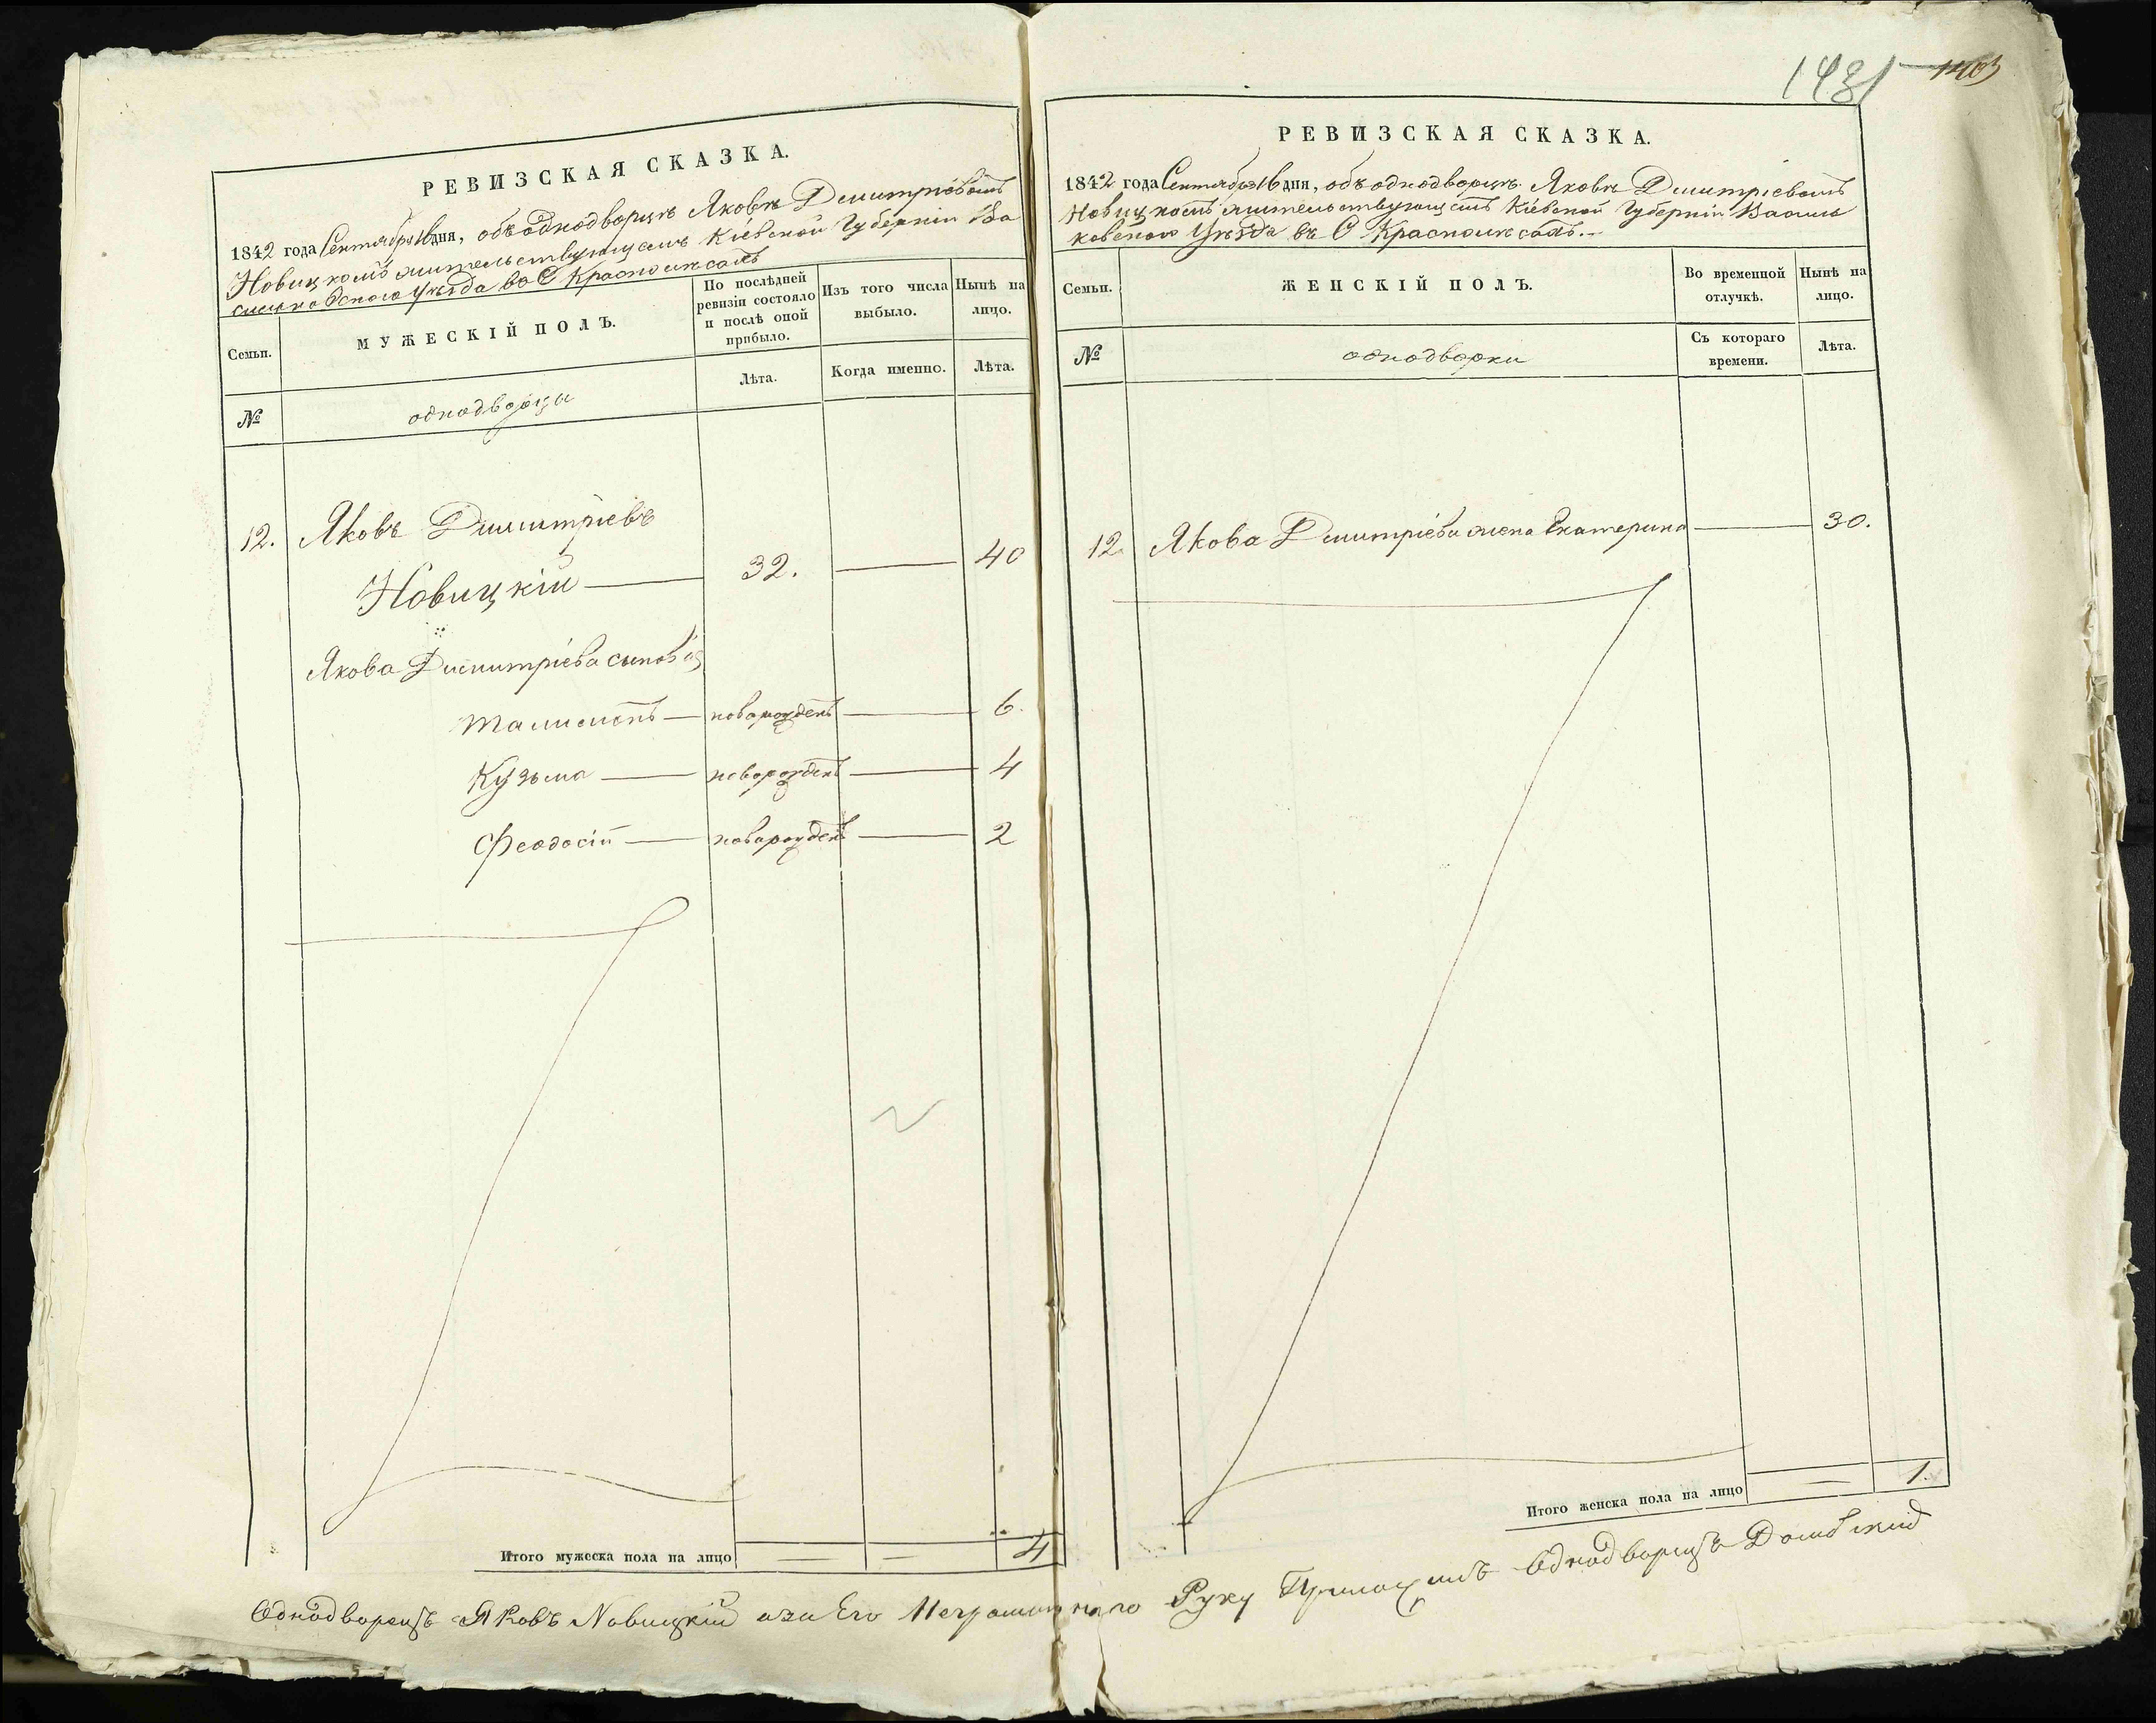 РЕВИЗСКАЯ СКАЗКА.
1842 года Сентября 16 дня, объ однодворцѣ Яковѣ Димитріевомъ
Новицкомъ жительствующемъ Кіевской Губерніи Ва
сильковскаго Уѣзда въ С Красномъ селѣ
Семьи.
МУЖЕСКІЙ ПОЛЪ.
По послѣдней ревизіи состояло и послѣ оной прибыло.
Изъ того числа выбыло.
Нынѣ на лицо.
№
однодворцы
Лѣта.
Когда именно.
Лѣта.
12. Яковъ Димитріевъ
Новицкій 32. 40
Якова Димитріева сыновья
новорожденъ 6.
Кузьма новорожденъ 4
Феодосій новорожденъ 2
Итого мужеска пола на лицо 4
1431 1403
РЕВИЗСКАЯ СКАЗКА.
1842 года Сентября 16 дня, объ однодворцѣ Яковѣ Димитріевомъ
Новицкомъ жительствующемъ Кіевской Губерніи Василь
ковскаго Уѣзда въ С Красномъ селѣ.
Семьи.
ЖЕНСКІЙ ПОЛЪ.
Во временной отлучкѣ.
Нынѣ на лицо.
№
однодворки
Съ котораго времени.
Лѣта.
12. Якова Димитріева жена Екатерина 30.
Итого женска пола на лицо 1.
Однодворецъ Яковъ Новицкій а за Его Неграмотнаго Руку Приложилъ Однодворецъ Домбскій